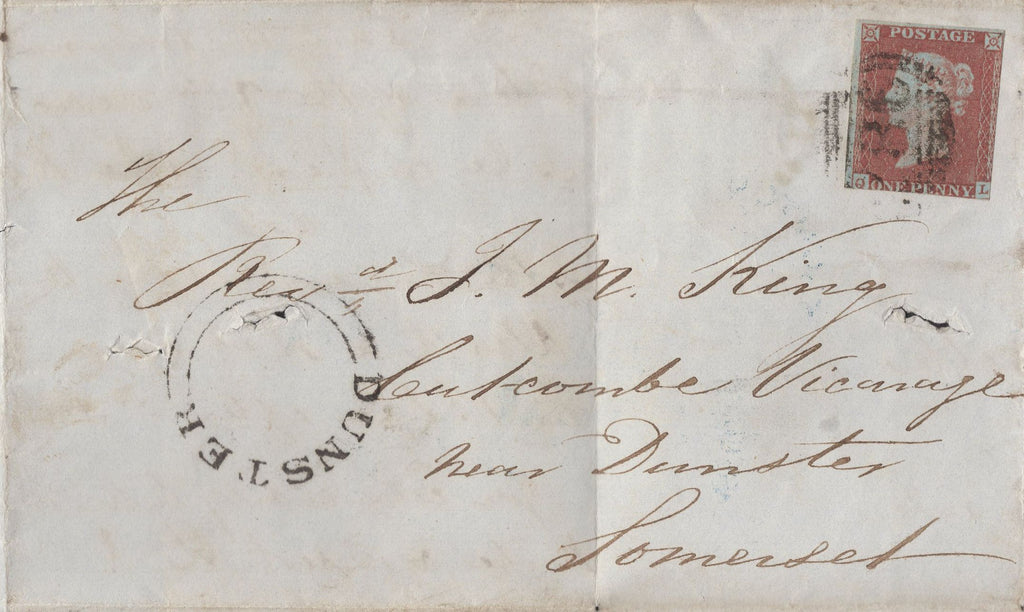 POSTAGE
ONE PENNY
Q L
The
Rev.d J. M. King
Cutcombe Vicarage
near Dunster
Somerset
DUNSTER